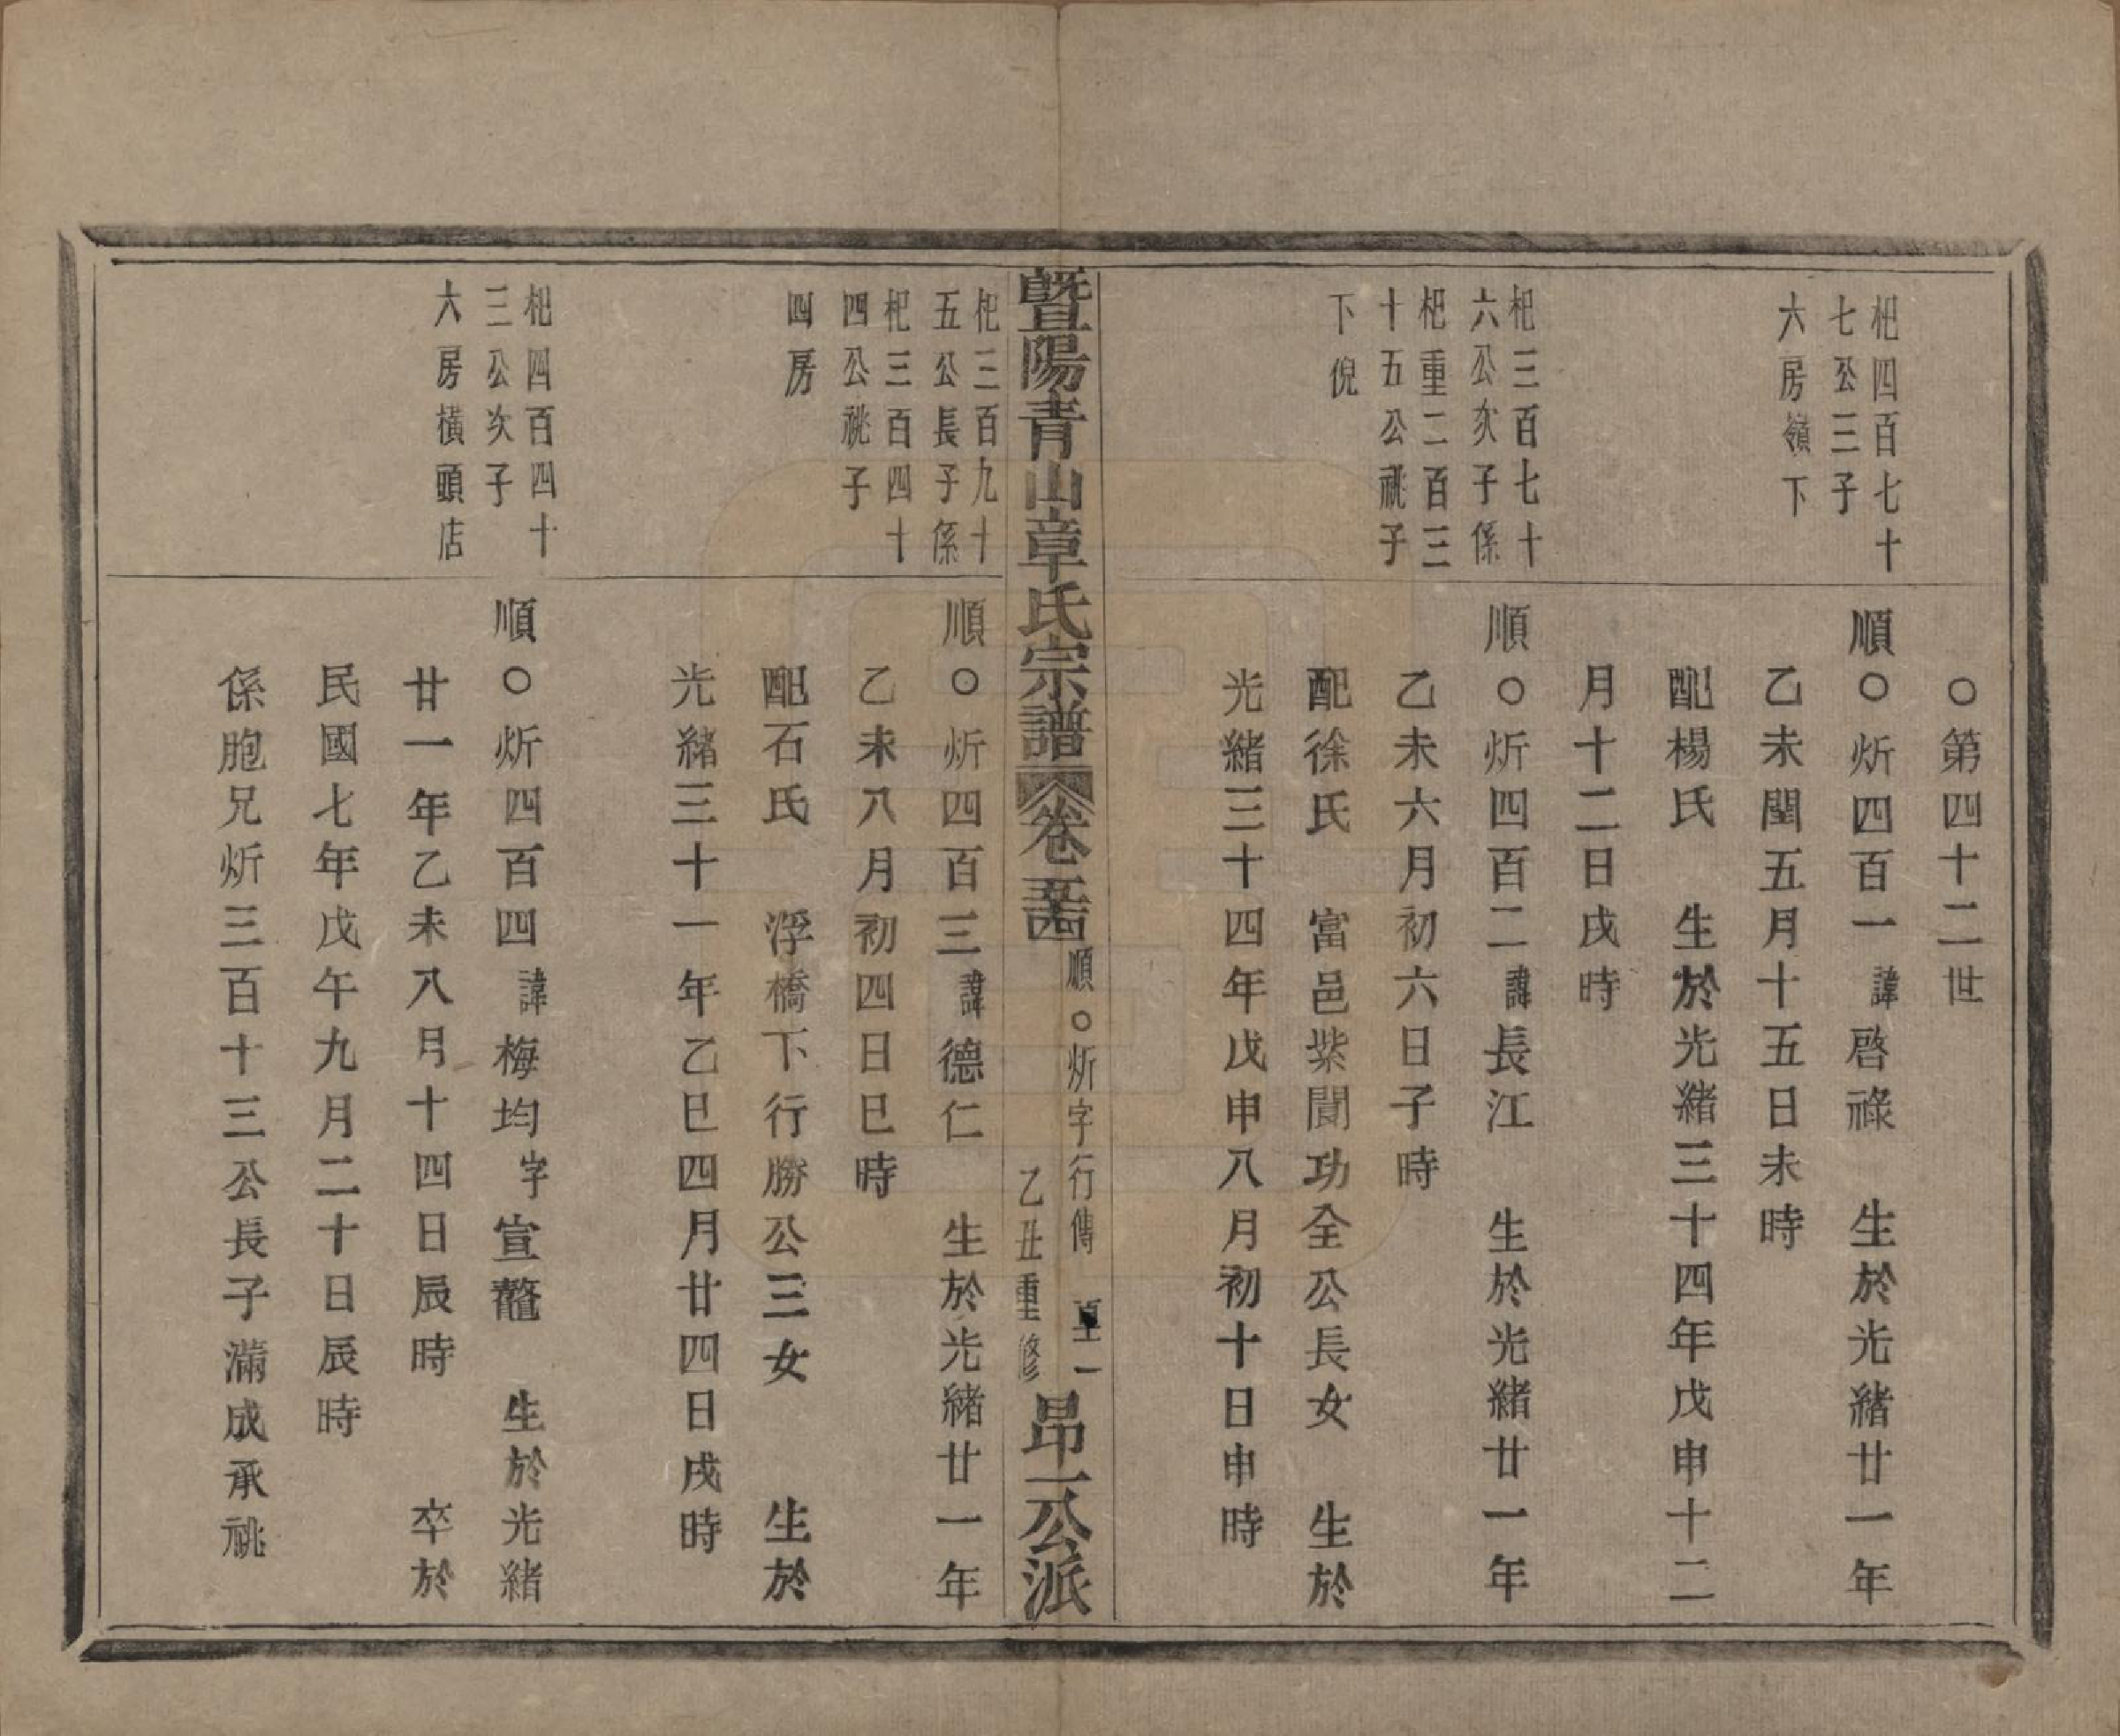 ○第四十二世
杞四百七十
七公三子
六房嶺下
順○炘四百一諱啓祿 生於光緒廿一年
乙未閏五月十五日未時
配楊氏 生於光緒三十四年戊申十二
月十二日戌時
杞三百七十
六公次子係
杞重二百三
十五公祧子
下倪
順○炘四百二諱長江 生於光緒廿一年
乙未六月初六日子時
配徐氏 富邑紫閬功全公長女 生於
光緒三十四年戊申八月初十日申時
暨陽青山章氏宗譜 卷 順○炘字行傳 乙丑重修 昂一公派
杞三百九十
五公長子係
杞三百四十
四公祧子
四房
順○炘四百三諱德仁 生於光緒廿一年
乙未八月初四日巳時
配石氏 浮橋下行勝公三女 生於
光緒三十一年乙巳四月廿四日戌時
杞四百四十
三公次子
六房橫頭店
順○炘四百四諱梅均字宣鼇 生於光緒
廿一年乙未八月十四日辰時 卒於
民國七年戊午九月二十日辰時
係胞兄炘三百十三公長子滿成承祧